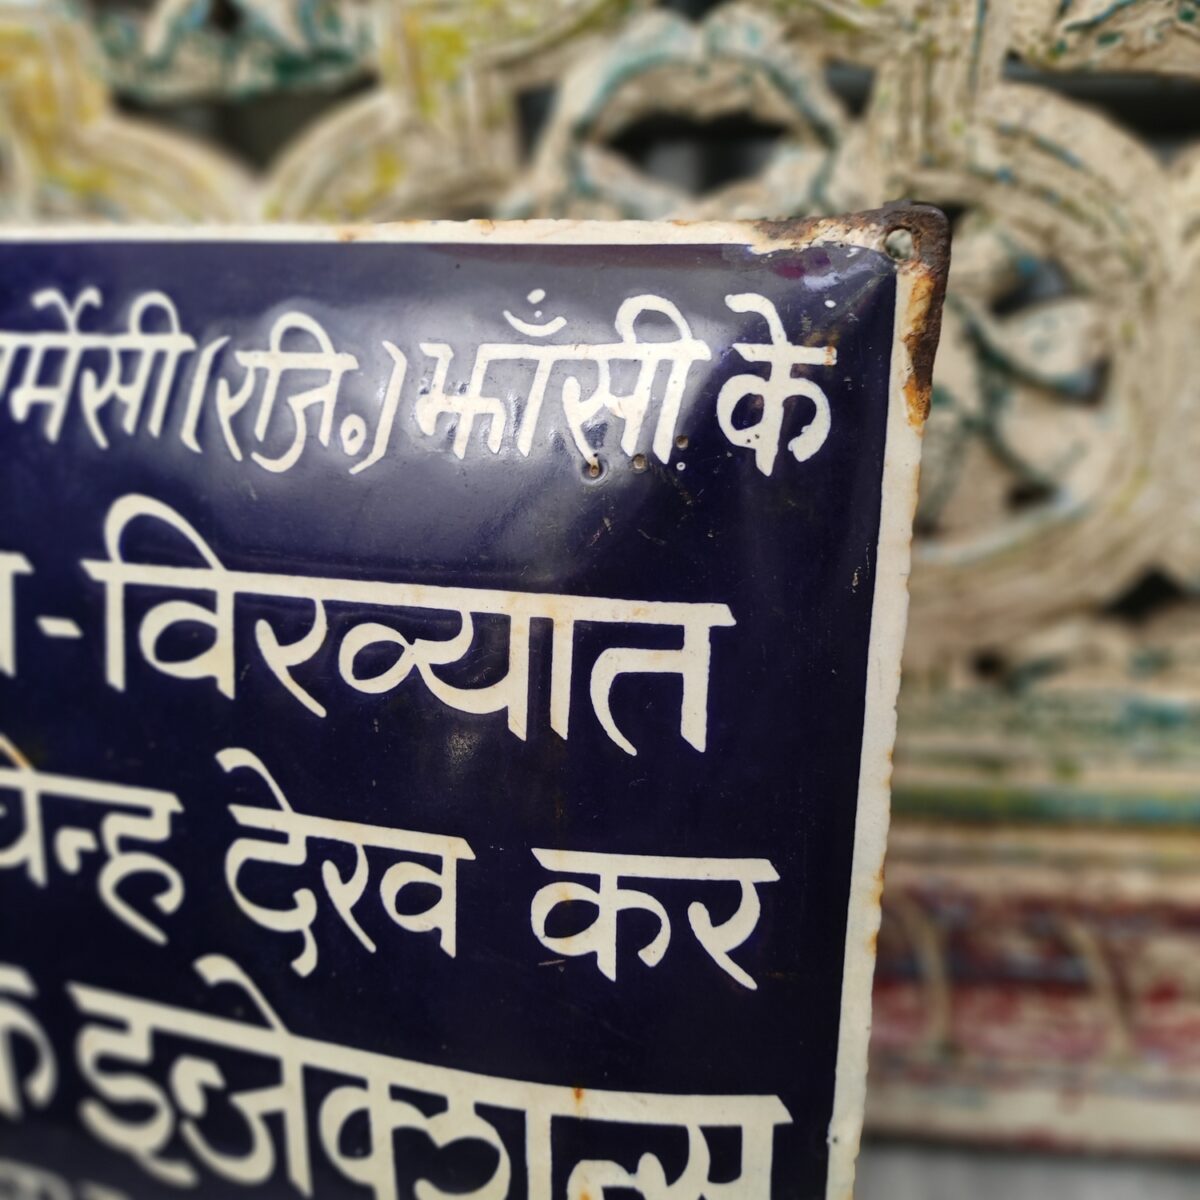 र्मेसी (रजि॰) झाँसी के
- विख्यात
चिन्ह देख कर
क इन्जेक्शन्स